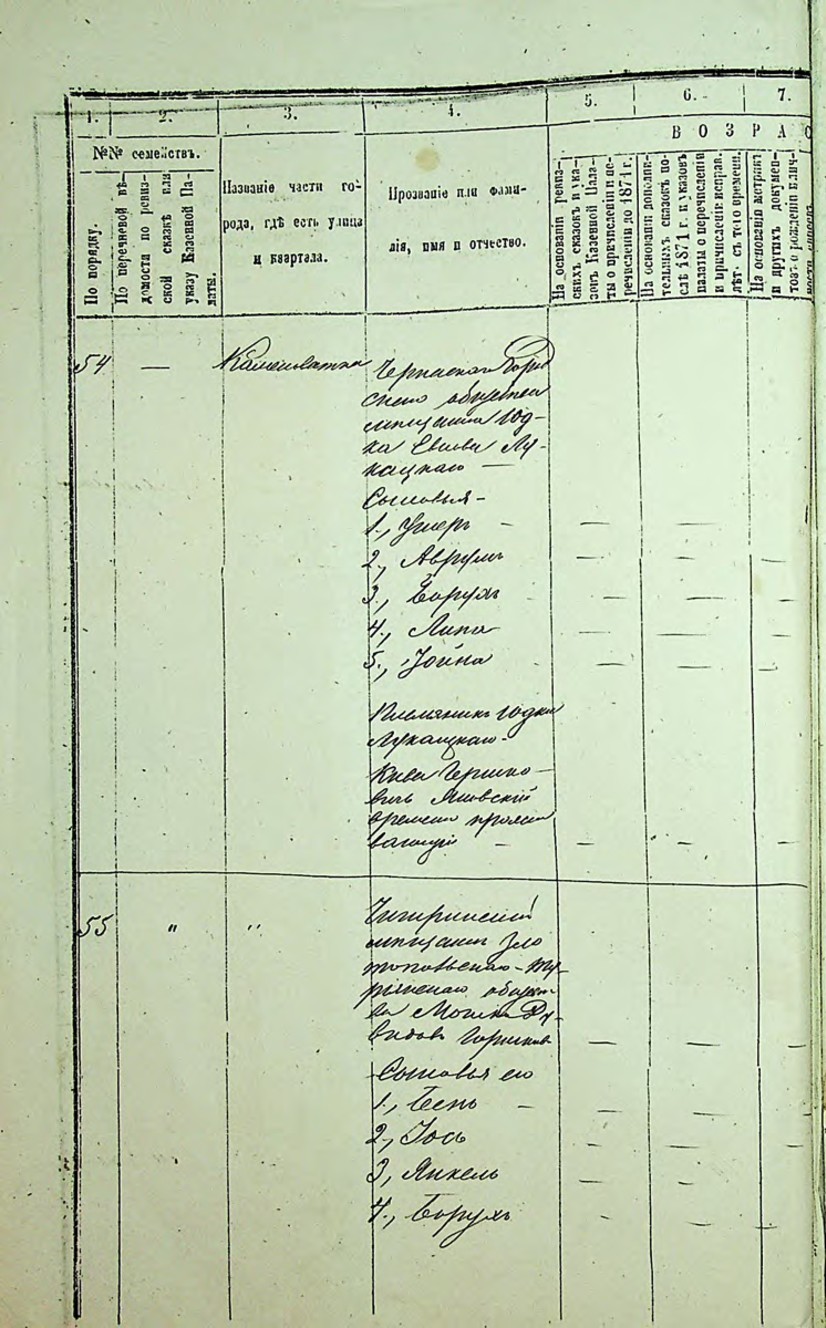 1. 2. 3. 4. 5. 6. 7.
ВОЗРАС
№№ семействъ.
По порядку.
По перечневой вѣ-
домости по ревиз-
ской сказкѣ или
указу Казенной Па-
латы.
Названіе части го-
рода, гдѣ есть улица
и квартала.
Прозваніе или фами-
лія, имя и отчество.
На основаніи ревиз-
скихъ сказокъ и ука-
зовъ Казенной Пала-
ты о причисленіи и пе-
речисленіи до 1871 г.
На основаніи дополни-
тельныхъ сказокъ по-
слѣ 1871 г. и указовъ
палаты о перечисленіи
и причисленіи исправ.
лѣт. съ того времени.
На основаніи метрикъ
и другихъ докумен-
товъ о рожденіи
54 —
Черкаскаго Город
скаго общества
мещанинъ Юд-
ка Лу-
кацкаго —
Сыновья -
1., Ушеръ -
2., Аврумъ
3., Борухъ
4., Липа
5., Іойна
Племяникъ Юдки
Лукацкаго -
Кива Гершко-
вичъ
времено прожи
вающій -
55 " "
Чигиринскій
мещанинъ Зло
топольскаго -
общест
ва Мошко Ду-
видовъ
Сыновья его
1., -
2., Іось
3, Янкель
4., Борухъ